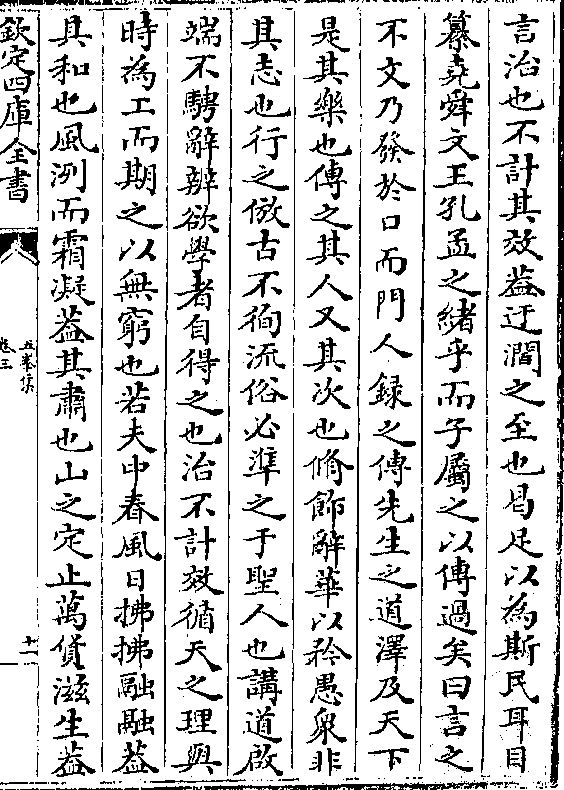 言治也不計其效葢迂濶之至也曷足以為斯民耳目
纂堯舜文王孔孟之緒乎而子屬之以傳過矣曰言之
不文乃發於口而門人録之傳先生之道澤及天下
是其樂也傳之其人又其次也脩飾辭華以矜愚衆非
其志也行之倣古不徇流俗必準之于聖人也講道啟
端不騁辭辨欲學者自得之也治不計效循天之理與
時為工而期之以無窮也若夫中春風日拂拂融融葢
具和也風洌而霜凝葢其肅也山之定止萬貨滋生葢
欽定四庫全書
五峯集
卷三
十一